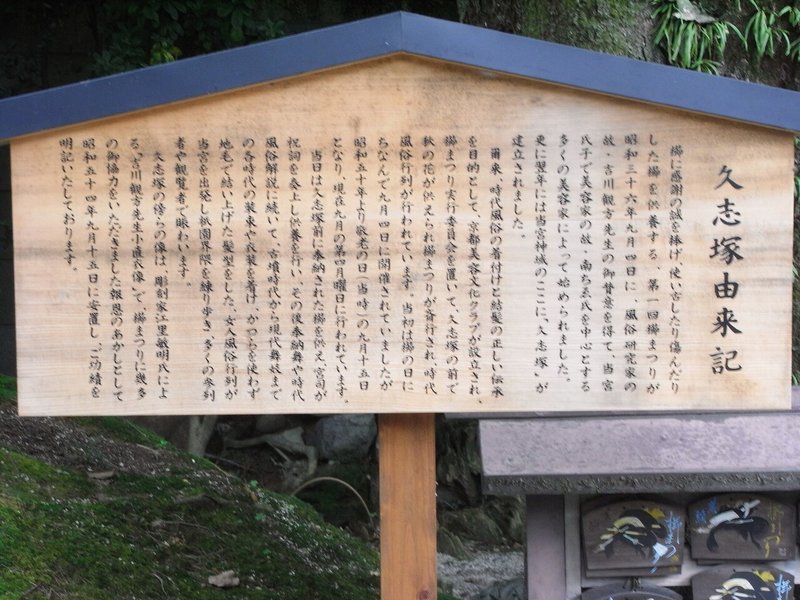 久志塚由来記
櫛に感謝の誠を捧げ、使い古したり傷んだり
した櫛を供養する、第一回櫛まつりが
昭和三十六年九月四日に、風俗研究家の
故・吉川観方先生の御賛意を得て、当宮
氏子で美容家の故・南ちゑ氏を中心とする
多くの美容家によって始められました。
更に翌年には当宮神域のここに、久志塚、が
建立されました。
爾来、時代風俗の着付けと結髪の正しい伝承
を目的として、京都美容文化クラブが設立され、
櫛まつり実行委員会を置いて、久志塚の前で
秋の花が供えられ櫛まつりが斎行され、時代
風俗行列が行われています。当初は櫛の日に
ちなんで九月四日に開催されていましたが
昭和五十年より敬老の日(当時)の九月十五日
となり、現在九月の第四月曜日に行われています。
当日は久志塚前に奉納された櫛を供え、宮司が
祝詞を奏上し供養を行い、その後奉納舞や時代
風俗解説に続いて、古墳時代から現代舞妓まで
の各時代の装束や衣装を着け、かつらを使わず
地毛で結い上げた髪型をした、女人風俗行列が
当宮を出発し祇園界隈を練り歩き、多くの参列
者や観覧者で賑わいます。
久志塚の傍らの像は、彫刻家江里敏明氏によ
る、吉川観方先生小直衣像、で、櫛まつりに幾多
の御協力をいただきました報恩のあかしとして
昭和五十四年九月十五日に安置し、ご功績を
明記いたしております。